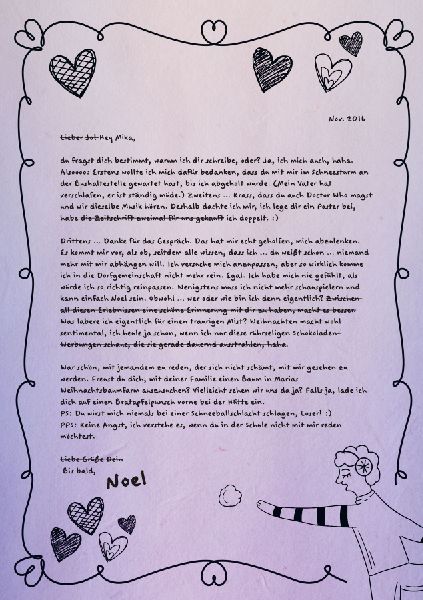 Nov. 2016
Lieber Jot Hey Mika,
du fragst dich bestimmt, warum ich dir schreibe, oder? Ja, ich mich auch, haha.
Alsoooo: Erstens wollte ich mich dafür bedanken, dass du mit mir im Schneesturm an
der Bushaltestelle gewartet hast, bis ich abgeholt wurde. (Mein Vater hat
verschlafen, er ist ständig müde.) Zweitens ... Krass, dass du auch Doctor Who magst
und wir dieselbe Musik hören. Deshalb dachte ich mir, ich lege dir ein Poster bei,
habe die Zeitschrift zweimal für uns gekauft ich doppelt. :)
Drittens ... Danke für das Gespräch. Das hat mir echt geholfen, mich abzulenken.
Es kommt mir vor, als ob, seitdem alle wissen, dass ich ... du weißt schon ... niemand
mehr mit mir abhängen will. Ich versuche mich anzupassen, aber so wirklich komme
ich in die Dorfgemeinschaft nicht mehr rein. Egal. Ich habe mich nie gefühlt, als
würde ich so richtig reinpassen. Wenigstens muss ich nicht mehr schauspielern und
kann einfach Noel sein. Obwohl ... wer oder wie bin ich denn eigentlich? Zwischen
all diesen Erlebnissen eine schöne Erinnerung mit dir zu haben, macht es besser
Was labere ich eigentlich für einen traurigen Mist? Weihnachten macht wohl
sentimental, ich heule ja schon, wenn ich nur diese rührseligen Schokoladen-
Werbungen schaue, die sie gerade dauernd ausstrahlen, haha.
War schön, mit jemandem zu reden, der sich nicht schämt, mit mir gesehen zu
werden. Freust du dich, mit deiner Familie einen Baum in Marias
Weihnachtsbaumfarm auszusuchen? Vielleicht sehen wir uns da ja? Falls ja, lade ich
dich auf einen Bratapfelpunsch vorne bei der Hütte ein.
PS: Du wirst mich niemals bei einer Schneeballschlacht schlagen, Loser! :)
PPS: Keine Angst, ich verstehe es, wenn du in der Schule nicht mit mir reden
möchtest.
Liebe Grüße Dein
Bis bald,
Noel